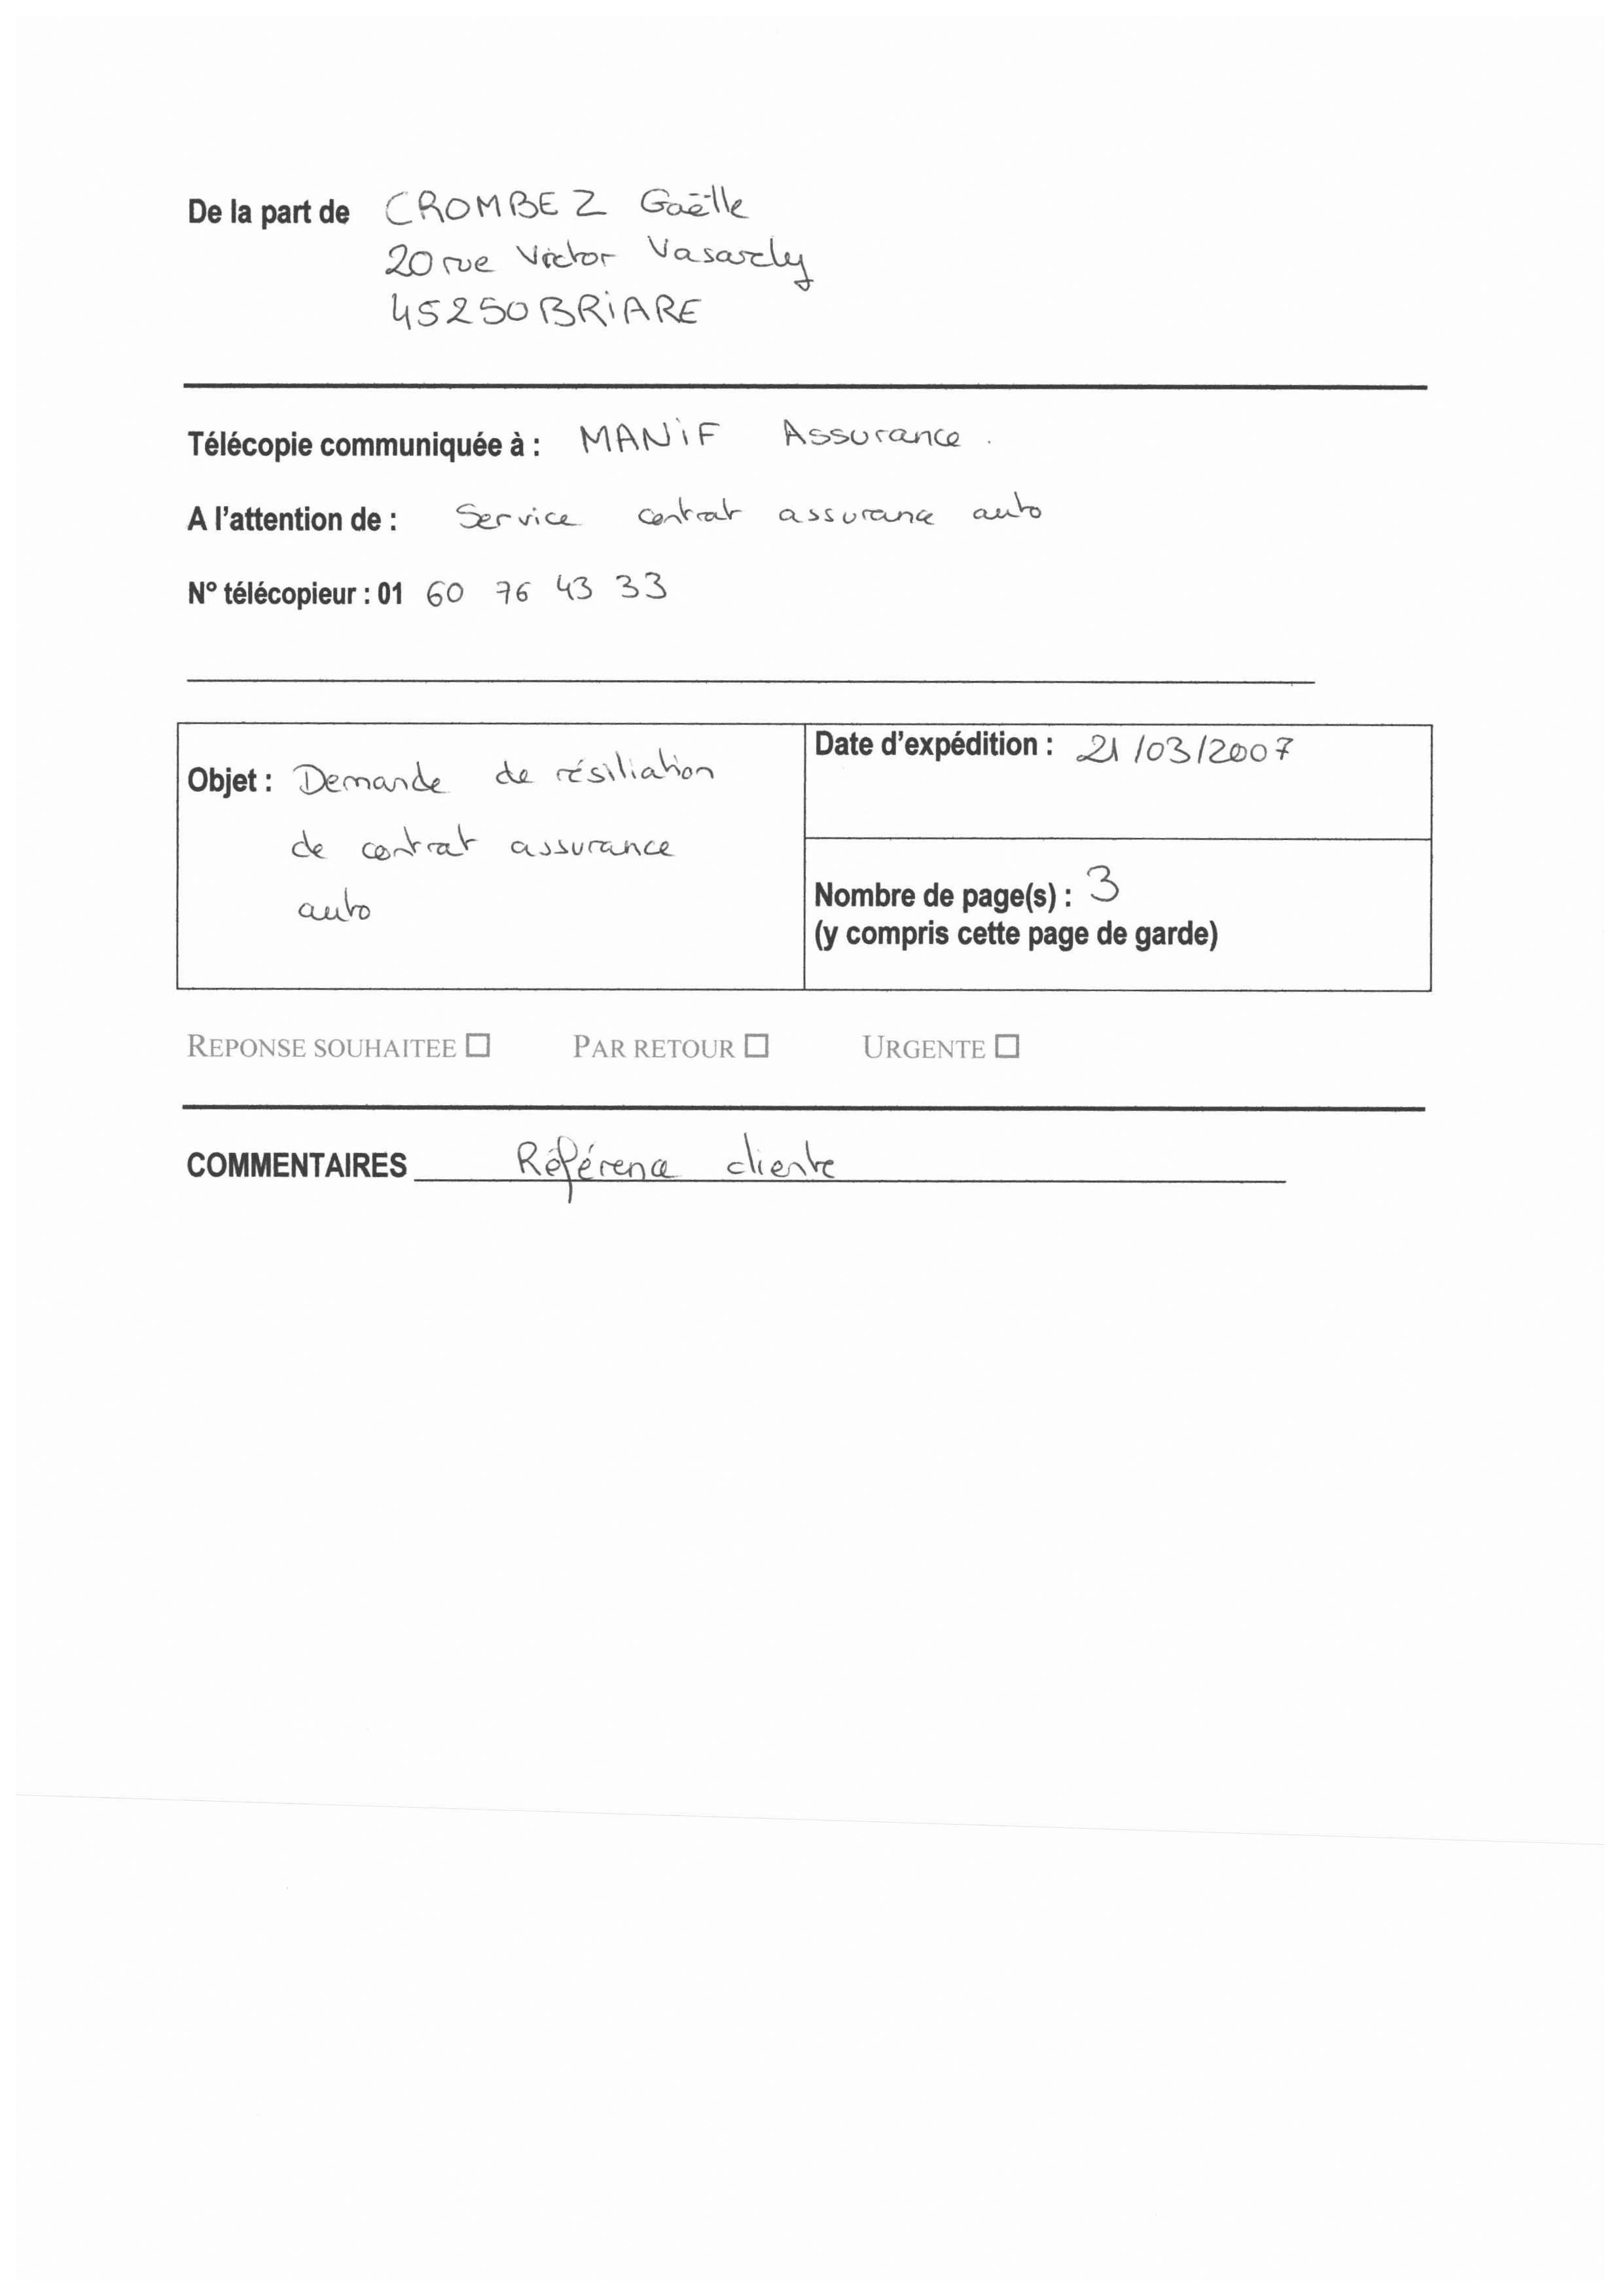 De la part de CROMBEZ Gaëlle
20 rue Victor Vasarely
45250 BRIARE
Télécopie communiquée à : MANiF Assurance.
A l'attention de : Service contrat assurance auto
N° télécopieur : 01 60 76 43 33
Objet : Demande de résiliation
de contrat assurance
auto
Date d'expédition : 21/03/2007
Nombre de page(s) : 3
(y compris cette page de garde)
REPONSE SOUHAITEE ☐ PAR RETOUR ☐ URGENTE ☐
COMMENTAIRES Référence cliente